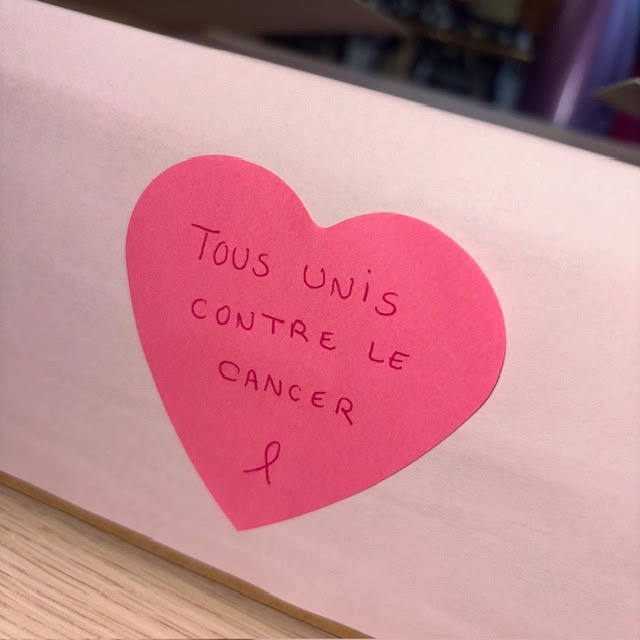 TOUS UNiS
CONTRE LE
CANCER